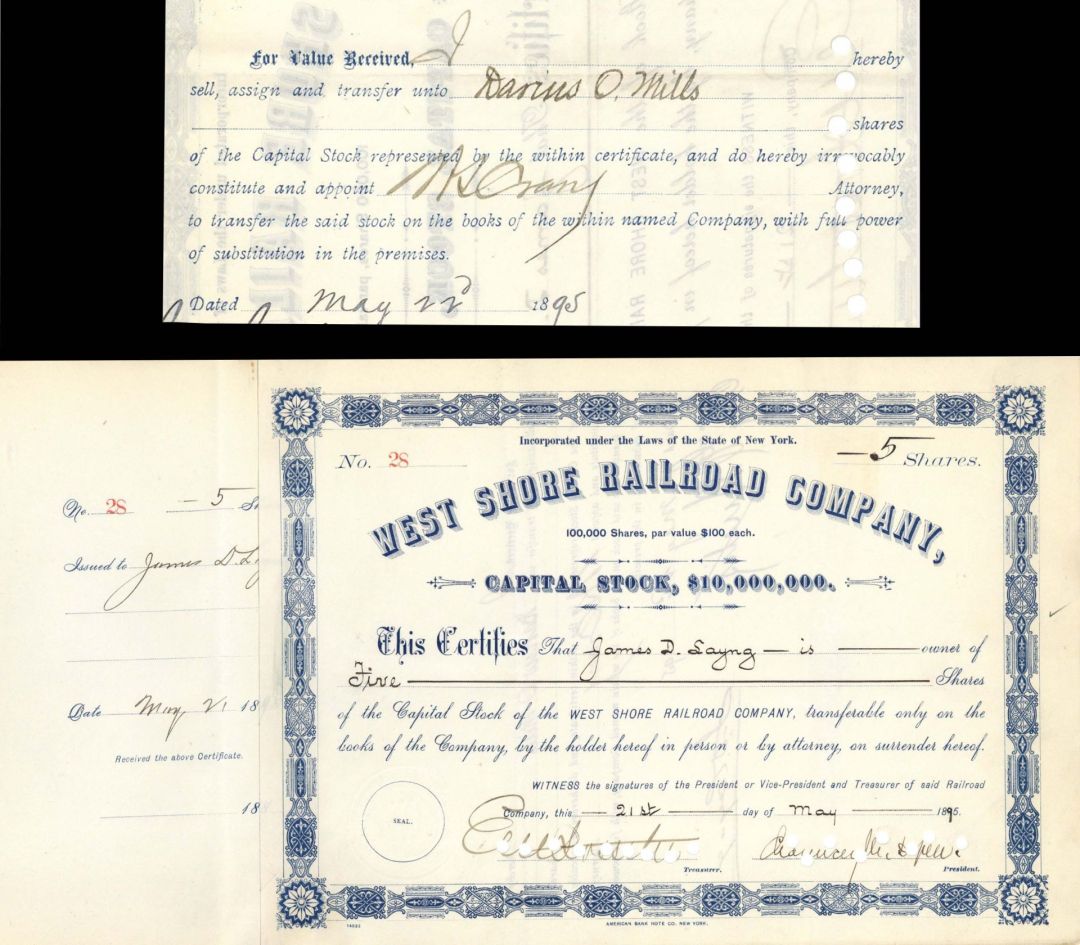 For Value Received, I hereby
sell, assign and transfer unto Darius O. Mills
shares
of the Capital Stock represented by the within certificate, and do hereby irrevocably
constitute and appoint Attorney,
to transfer the said stock on the books of the within named Company, with full power
of substitution in the premises.
Dated May 22d 1895
Incorporated under the Laws of the State of New York.
No. 28 — 5 Shares.
WEST SHORE RAILROAD COMPANY,
100,000 Shares, par value $100 each.
CAPITAL STOCK, $10,000,000.
This Certifies That James D. Layng — is owner of
Five Shares
of the Capital Stock of the WEST SHORE RAILROAD COMPANY, transferable only on the
books of the Company, by the holder hereof in person or by attorney, on surrender hereof.
WITNESS the signatures of the President or Vice-President and Treasurer of said Railroad
Company, this 21st day of May 1895.
SEAL.
Chauncey M. Depew.
Treasurer. President.
14892
AMERICAN BANK NOTE CO. NEW YORK.
No. 28 — 5 Sh
Issued to James D. L
Date May 21 18
Received the above Certificate.
18